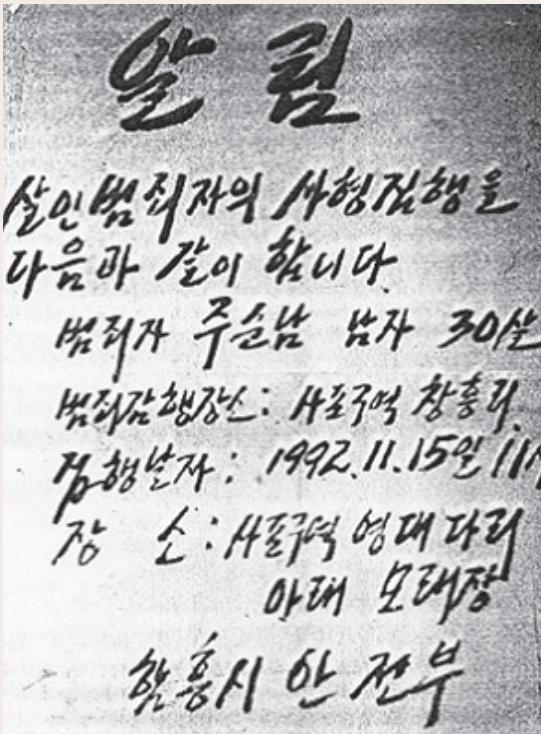 알 림
살인범죄자의 사형집행을
다음과 같이 합니다.
범죄자 주순남 남자 30살
범죄감행장소: 사포구역 창흥리
집행날자: 1992.11.15일 11시
장 소: 사포구역 영대다리
아래 모래장
함흥시 안전부